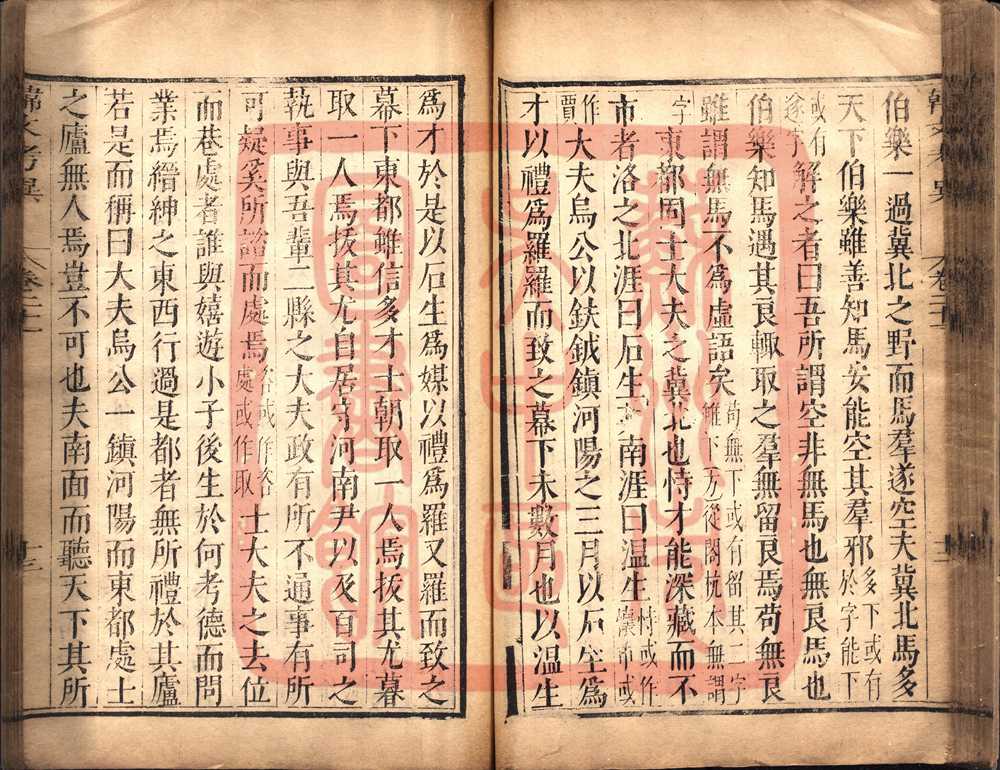 伯樂一過冀北之野而馬羣遂空夫冀北馬多
天下伯樂雖善知馬安能空其羣邪多下或有於字能下
或有遂字解之者曰吾所謂空非無馬也無良馬也
伯樂知馬遇其良輒取之羣無留良焉苟無良
雖謂無馬不爲虛語矣苟無下或有留其二字雖下方從閣杭本無謂
字東都固士大夫之冀北也恃才能深藏而不
市者洛之北涯曰石生其南涯曰温生恃或作懷市或
作賈大夫烏公以鈇鉞鎮河陽之三月以石生爲
才以禮爲羅羅而致之幕下未數月也以温生
爲才於是以石生爲媒以禮爲羅又羅而致之
幕下東都雖信多才士朝取一人焉拔其尤暮
取一人焉拔其尤自居守河南尹以及百司之
執事與吾輩二縣之大夫政有所不通事有所
可疑奚所諮而處焉諮或作咨處或作取士大夫之去位
而巷處者誰與嬉遊小子後生於何考德而問
業焉縉紳之東西行過是都者無所禮於其廬
若是而稱曰大夫烏公一鎮河陽而東都處士
之廬無人焉豈不可也夫南面而聽天下其所
韓文考異
卷二十一